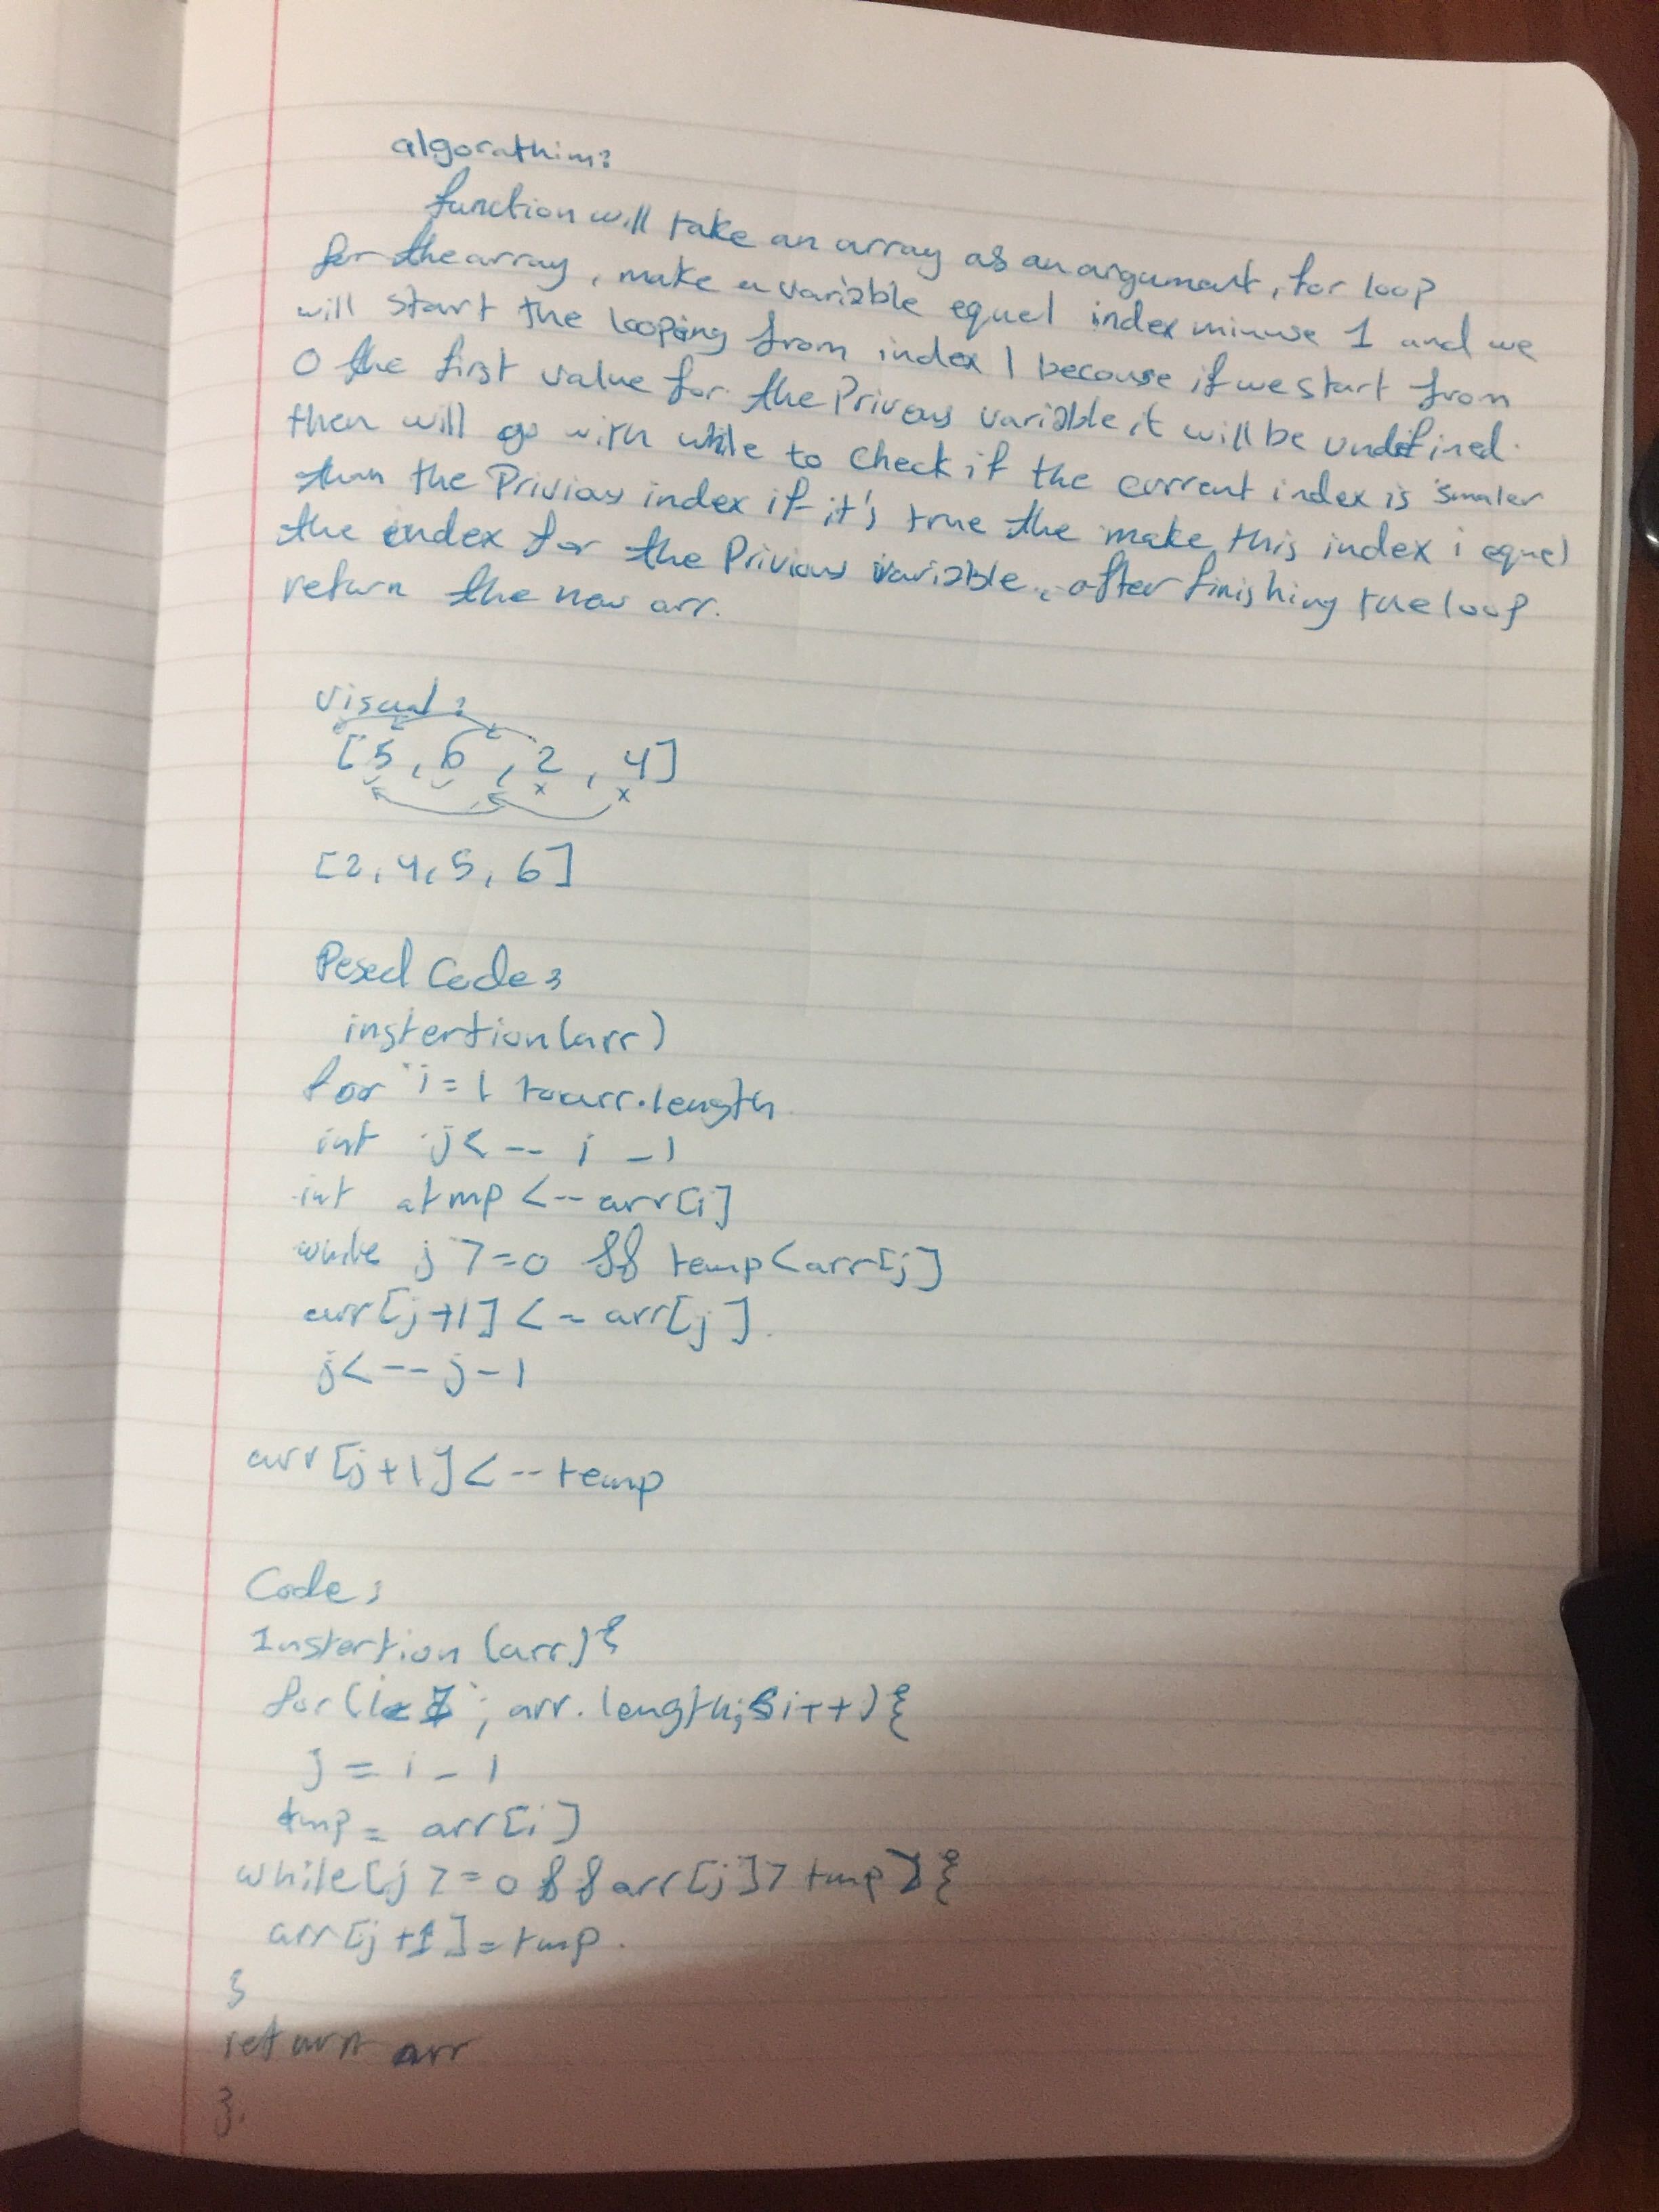 algorathim:
function will take an array as an argument, for loop
for the array, make a variable equel index minuse 1 and we
will start the looping from index 1 becouse if we start from
0 the first value for the Privous variable it will be undifined.
then will go with while to check if the current index is smaler
than the Privious index if it's true the make this index i equel
the index for the Privious variable, after finishing the loop
return the new arr.
visual:
[5, 6, 2, 4]
[2, 4, 5, 6]
Pesed Code:
instertion(arr)
for i = 1 to arr.length
int j <-- i - 1
int atmp <-- arr[i]
while j >= 0 && temp < arr[j]
arr[j+1] <- arr[j].
j <-- j - 1
arr[j+1] <-- temp
Code:
Instertion (arr) {
for(i ; arr.length; i++) {
j = i - 1
tmp = arr[i]
while[j >= 0 && arr[j] > tmp] {
arr[j+1] = tmp.
}
return arr
}.